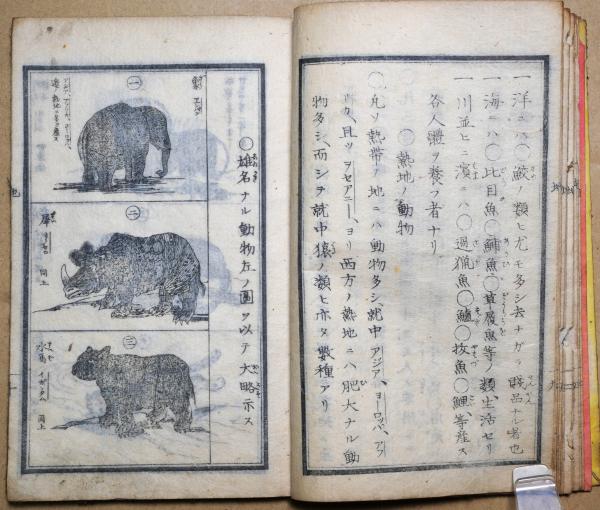 一 洋ニハ〇鮫ノ類ヒ尤モ多シ去ナガラ賤品ナル者也
一 海ニハ〇比目魚〇鯆魚〇草履魚等ノ類、生活セリ
一 川並ヒニ濱ニハ〇過猟魚〇鱸〇抜魚〇鯉等産ス
各人軆ヲ養フ者ナリ
〇熱地ノ動物
〇凡ソ熱帶ノ地ニハ動物多シ、就中アジア、ヨーロッパ、アフ
且ツヲセアニーヨリ西方ノ熱地ニハ肥大ナル動
物多シ、而シテ就中猿ノ類ヒ亦タ數種アリ
〇雄名ナル動物左ノ圖ヲ以テ大略示ス
一
二
犀
同上
三
水馬
同上